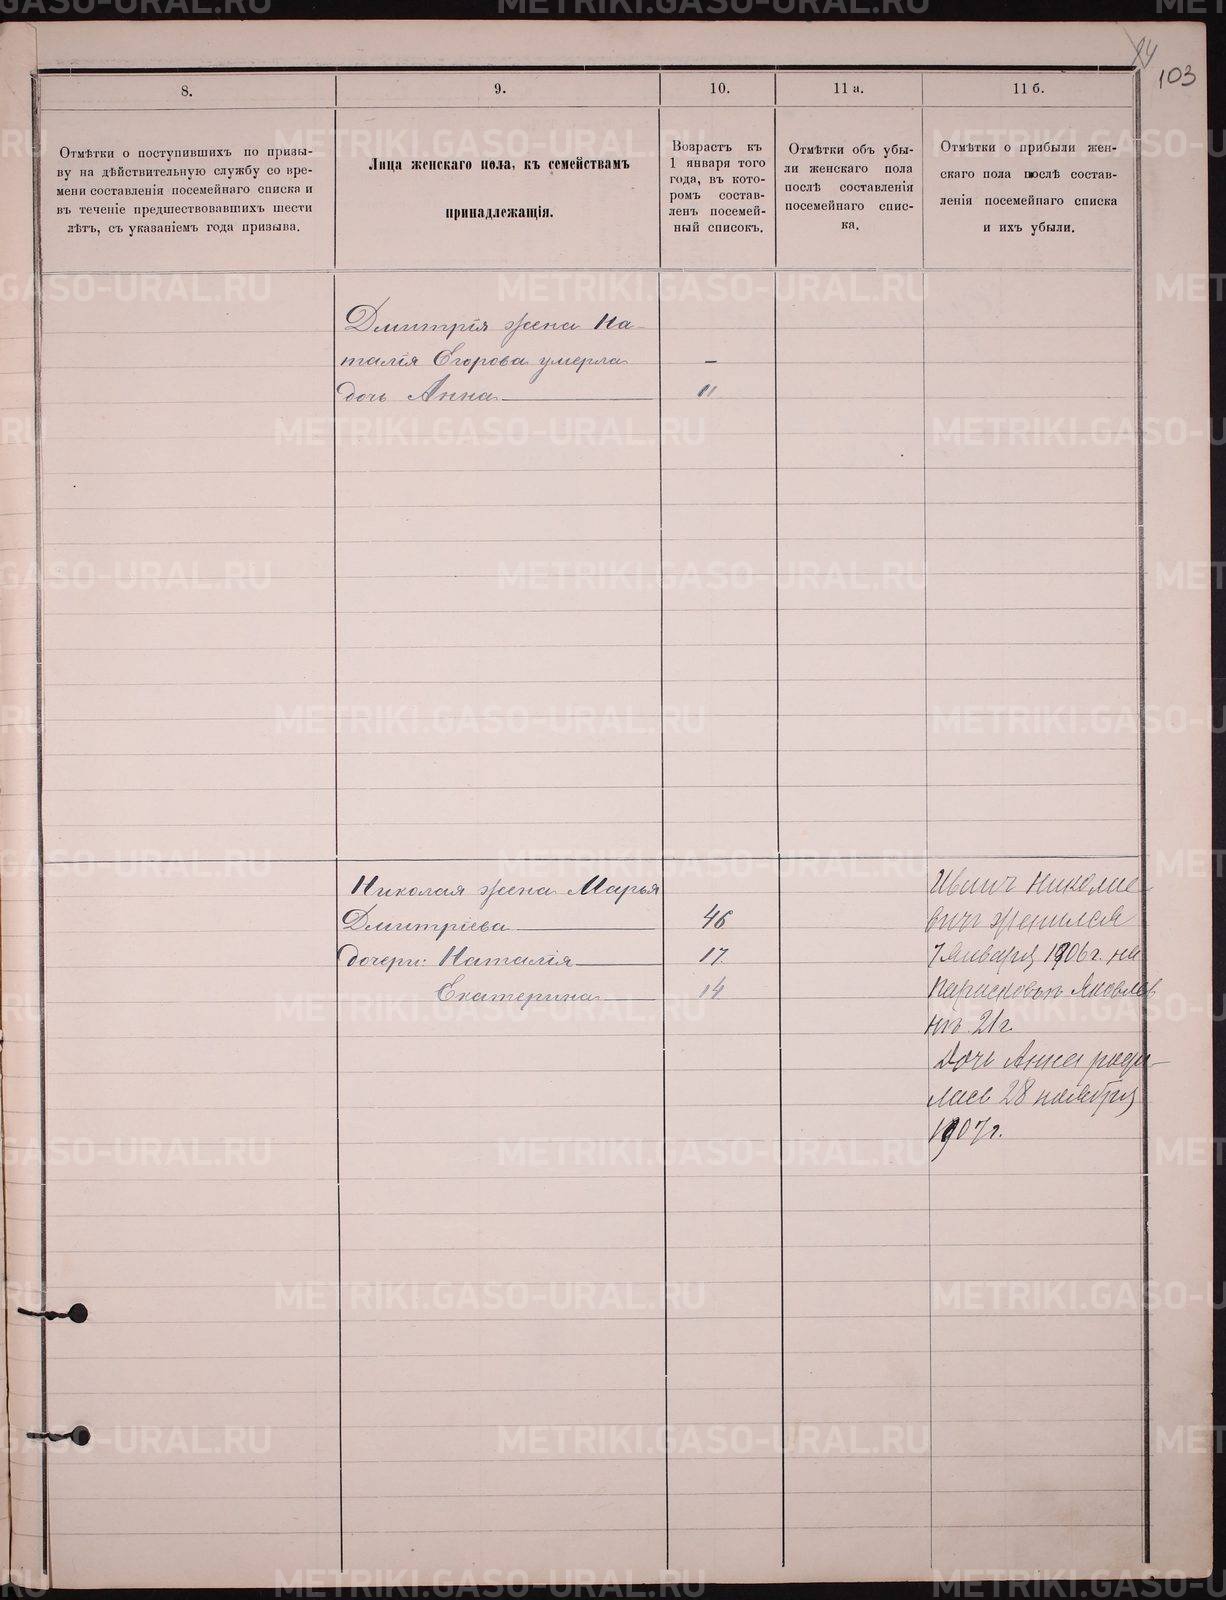 84
103
8.
9.
10.
11 а.
11 б.
Отмѣтки о поступившихъ по призы-
ву на дѣйствительную службу со вре-
мени составленія посемейнаго списка и
въ теченіе предшествовавшихъ шести
лѣтъ, съ указаніемъ года призыва.
Лица женскаго пола, къ семействамъ
принадлежащія.
Возрастъ къ
1 января того
года, въ кото-
ромъ состав-
ленъ посемей-
ный списокъ.
Отмѣтки объ убы-
ли женскаго пола
послѣ составленія
посемейнаго спис-
ка.
Отмѣтки о прибыли жен-
скаго пола послѣ состав-
ленія посемейнаго списка
и ихъ убыли.
Дмитрія жена На-
талія Егорова умерла –
дочь Анна 11
Николая жена Марья
Дмитріева 46
дочери: Наталія 17
Екатерина 14
Иванъ Николае-
вичъ женился
7 Января 1906 г. на
Парасковьѣ Яковлев
нѣ 21 г.
Дочь Анна роди-
лась 28 ноября
1907 г.
METRIKI.GASO-URAL.RU